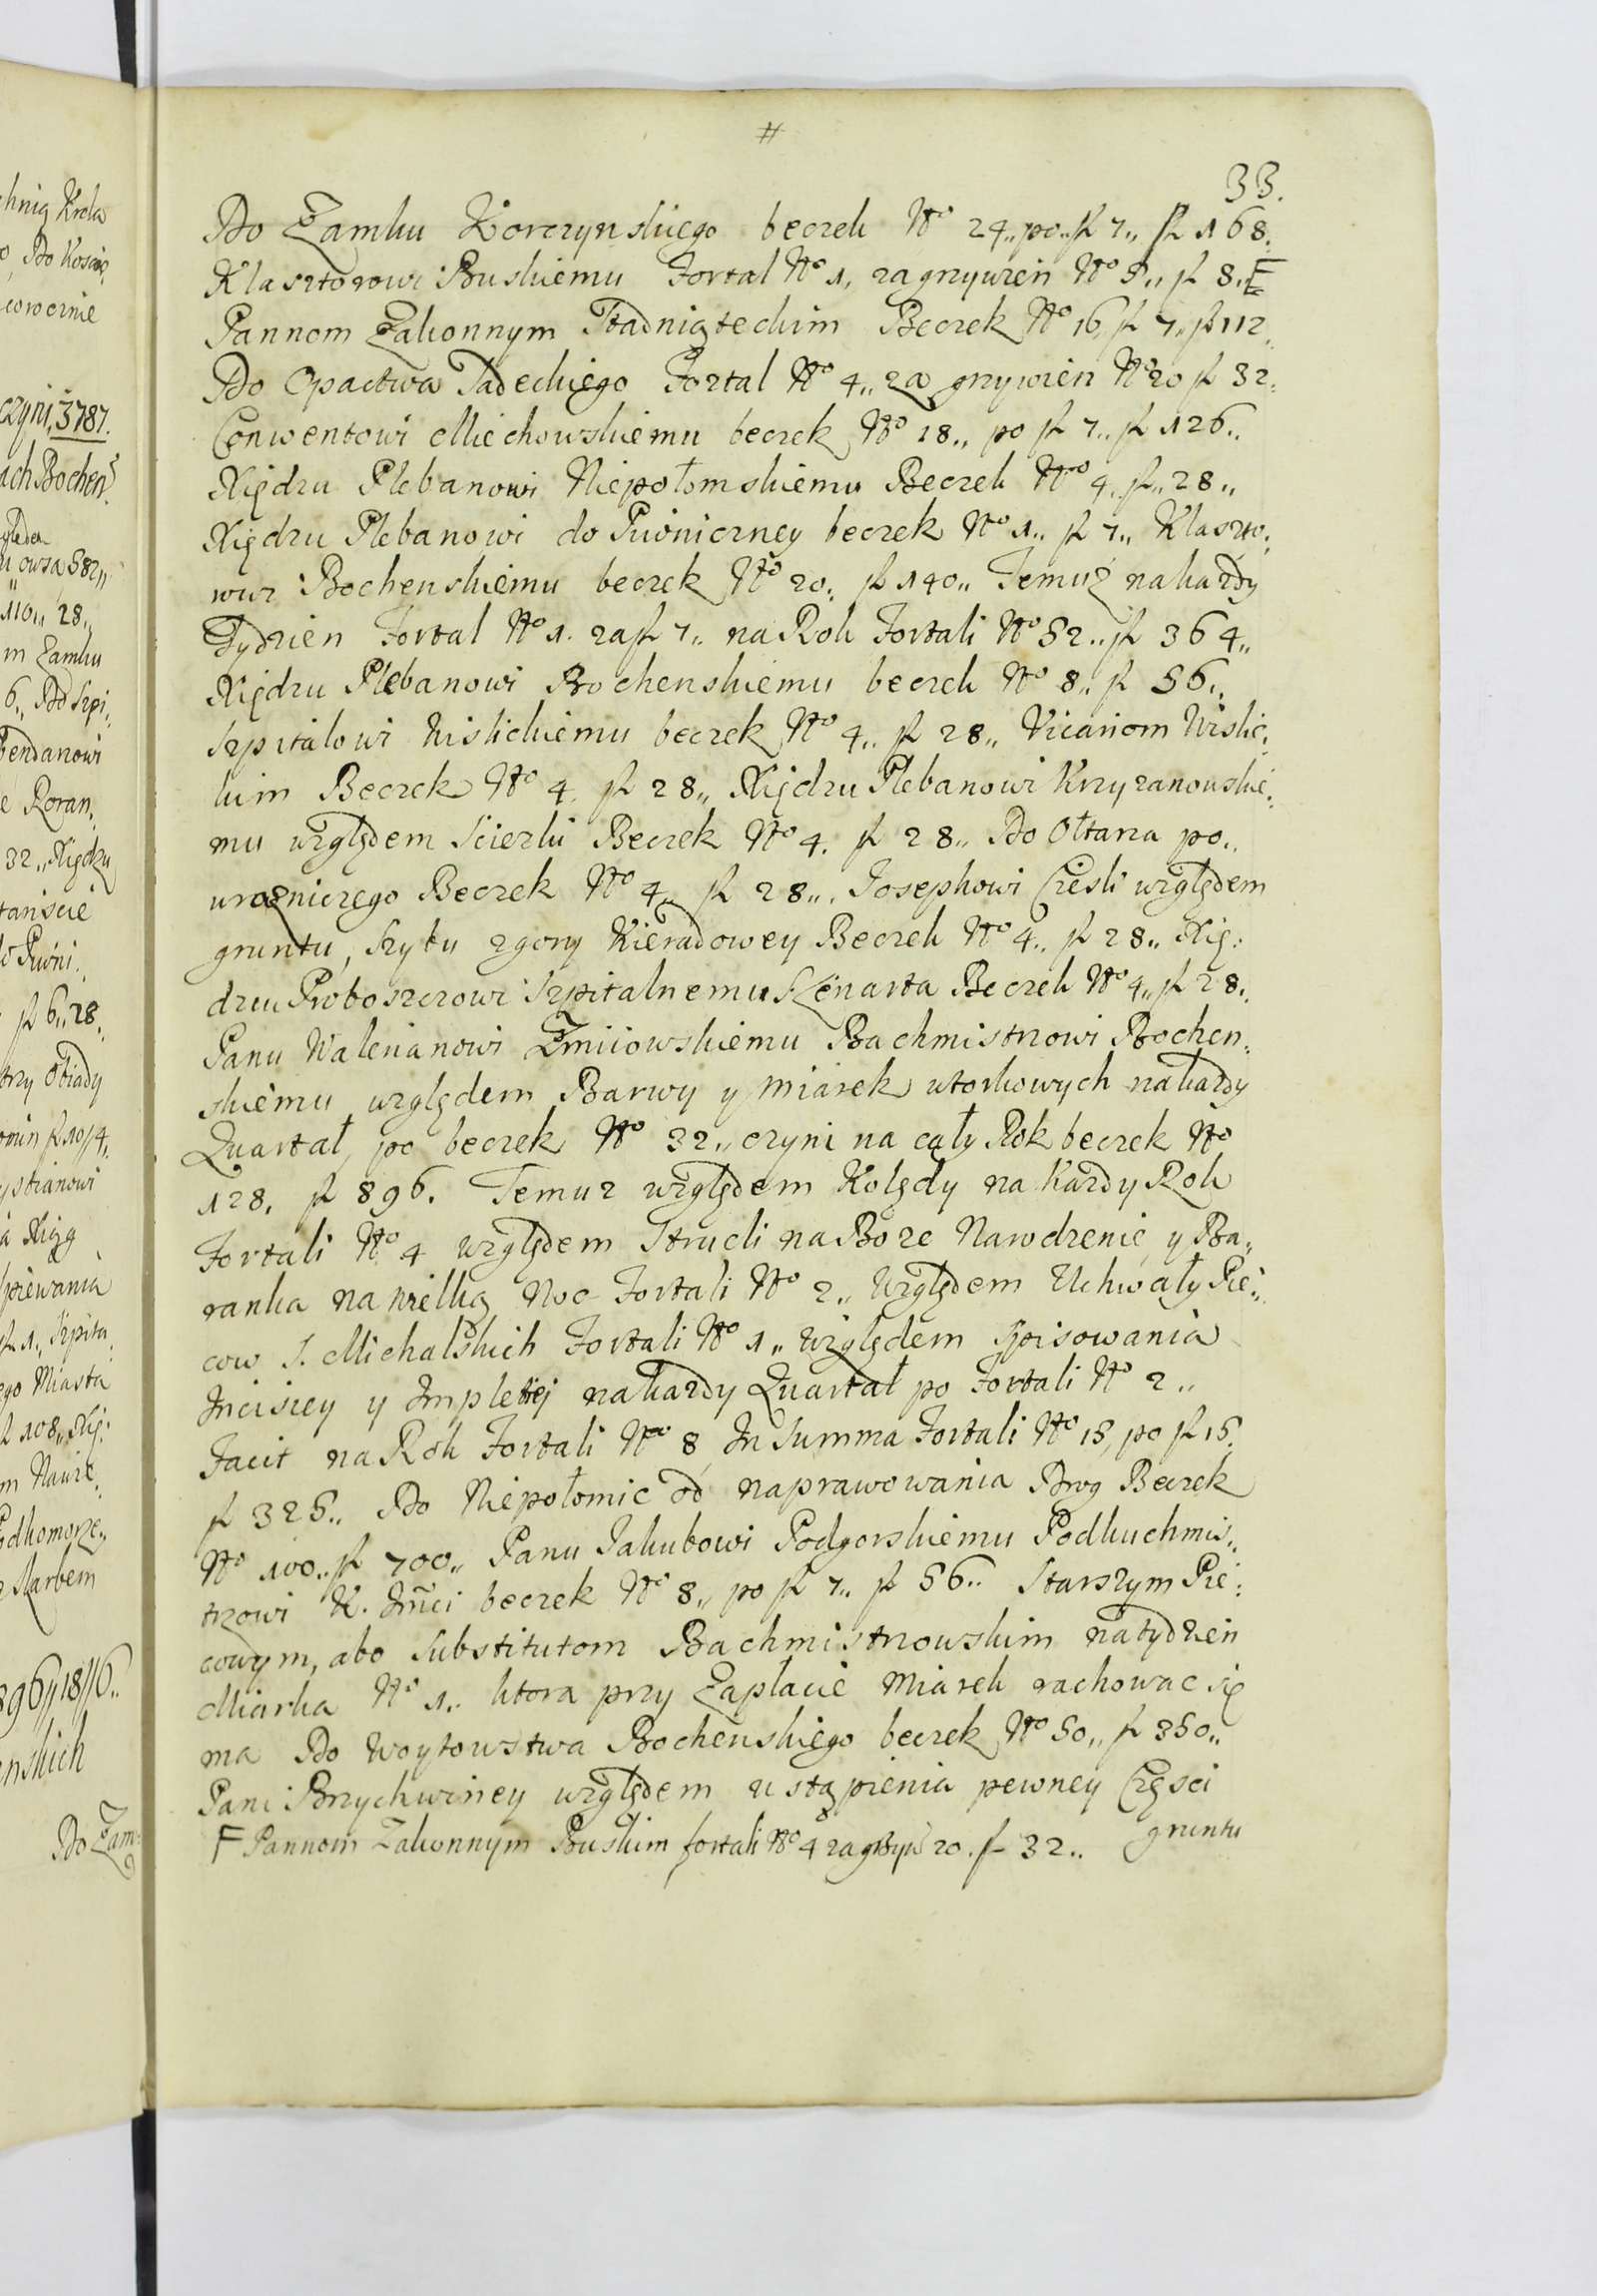 #
33.
Do Zamku Korczynskiego beczek No 24,, po,, f 7,, f 168.
Klasztorowi Buskiemu Fortal No 1, za grzywien No 5,, f 8,, F
Pannom Zakonnym Stadniąteckim Beczek No 16, f 7,, f 112.
Do Opactwa Tadeckiego Fortal No 4,, za grzywien No 20 f 32.
Conwentowi Miechowskiemu beczek No 18,, po f 7,, f 126,,
Xiędzu Plebanowi Niepołomskiemu Beczek No 4,, f,, 28,,
Xiędzu Plebanowi do Piwniczney beczek No 1,, f 7,, Klaszto:
wui Bochenskiemu beczek No 20,, f 140,, Temuż na każdy
Tydzien Fortal No 1. za f 7,, na Rok Fortali No 52,, f 364,,
Xiędzu Plebanowi Bochenskiemu beczek No 8,, f 56,,
Szpitalowi Wislickiemu beczek No 4,, f 28,, Vicariom Wislic:
kim Beczek No 4. f 28,, Xiędzu Plebanowi Krzyzanowskie:
mu względem Sciezki Beczek No 4. f 28,, Do Ołtarza po,,
wrozniczego Beczek No 4,, f 28,,. Josephowi Ciesli względem
gruntu, Szybu zgory Kieradowey Beczek No 4,, f 28,, Xię:
dzu Proboszczowi Szpitalnemu S Lenarta Beczek No 4,, f 28,,
Panu Walerianowi Żmiiowskiemu Bachmistrzowi Bochen:
skiemu względem Barwy y miarek utorkowych na każdy
Quartał, po beczek No 32,, czyni na cały Rok beczek No
128. f 896. Temuz względem Kolędy na Każdy Rok
Fortali No 4 względem Strucli na Boze Narodzenie, y Ba,,
ranka na wielką Noc Fortali No 2,, względem Uchwały Pie,,
cow S. Michalskich Fortali No 1,, względem Spisowania
Incisiey y Impletiej na każdy Quartał po Fortali No 2,,
Facit na Rok Fortali No 8 In Summa Fortali No 15, po f 15.
f 325,, Do Niepołomic od naprawowania Drog Beczek
No 100,, f 700,, Panu Jakubowi Podgorskiemu Podkuchmis,,
trzowi K. Jmci beczek No 8,, po f 7,, f 56,, Starszym Pie:
cowym, abo Substitutom Bachmistrzowskim na tydzien
Miarka No 1,, ktora przy Zapłacie Miarek rachowac się
ma Do Woytowstwa Bochenskiego beczek No 50,, f 350,,
Pani Brzychwiney względem ustąpienia pewney Części
gruntu
F Pannom Zakonnym Buskim fortali No 4 za grzyw 20. f 32,,